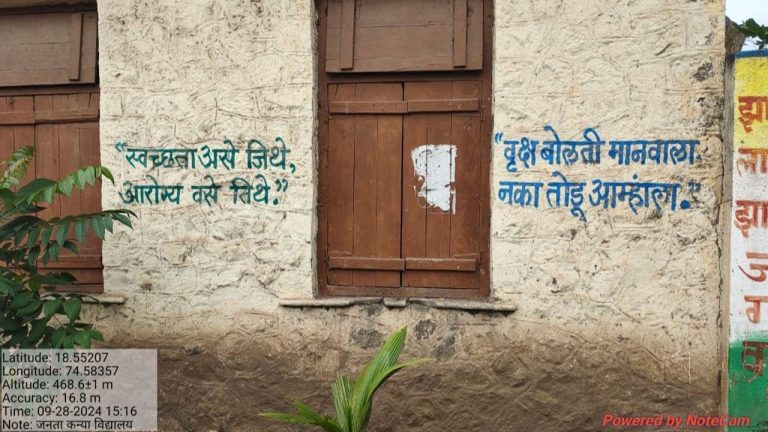 “स्वच्छता असे जिथे,
आरोग्य वसे तिथे.”
“वृक्ष बोलती मानवाला
नका तोडू आम्हांला.”
झा
ला
झा
ज
ग
Latitude: 18.55207
Longitude: 74.58357
Altitude: 468.6±1 m
Accuracy: 16.8 m
Time: 09-28-2024 15:16
Note: जनता कन्या विद्यालय
Powered by NoteCam